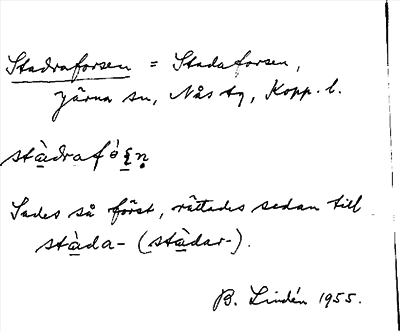 Stadraforsen = Stadaforsen,
Järna sn, Nås tg, Kopp. l.
stàdrafó
Sades så först, rättades sedan till
stàda- (stàdar-).
B. Lindén 1955.